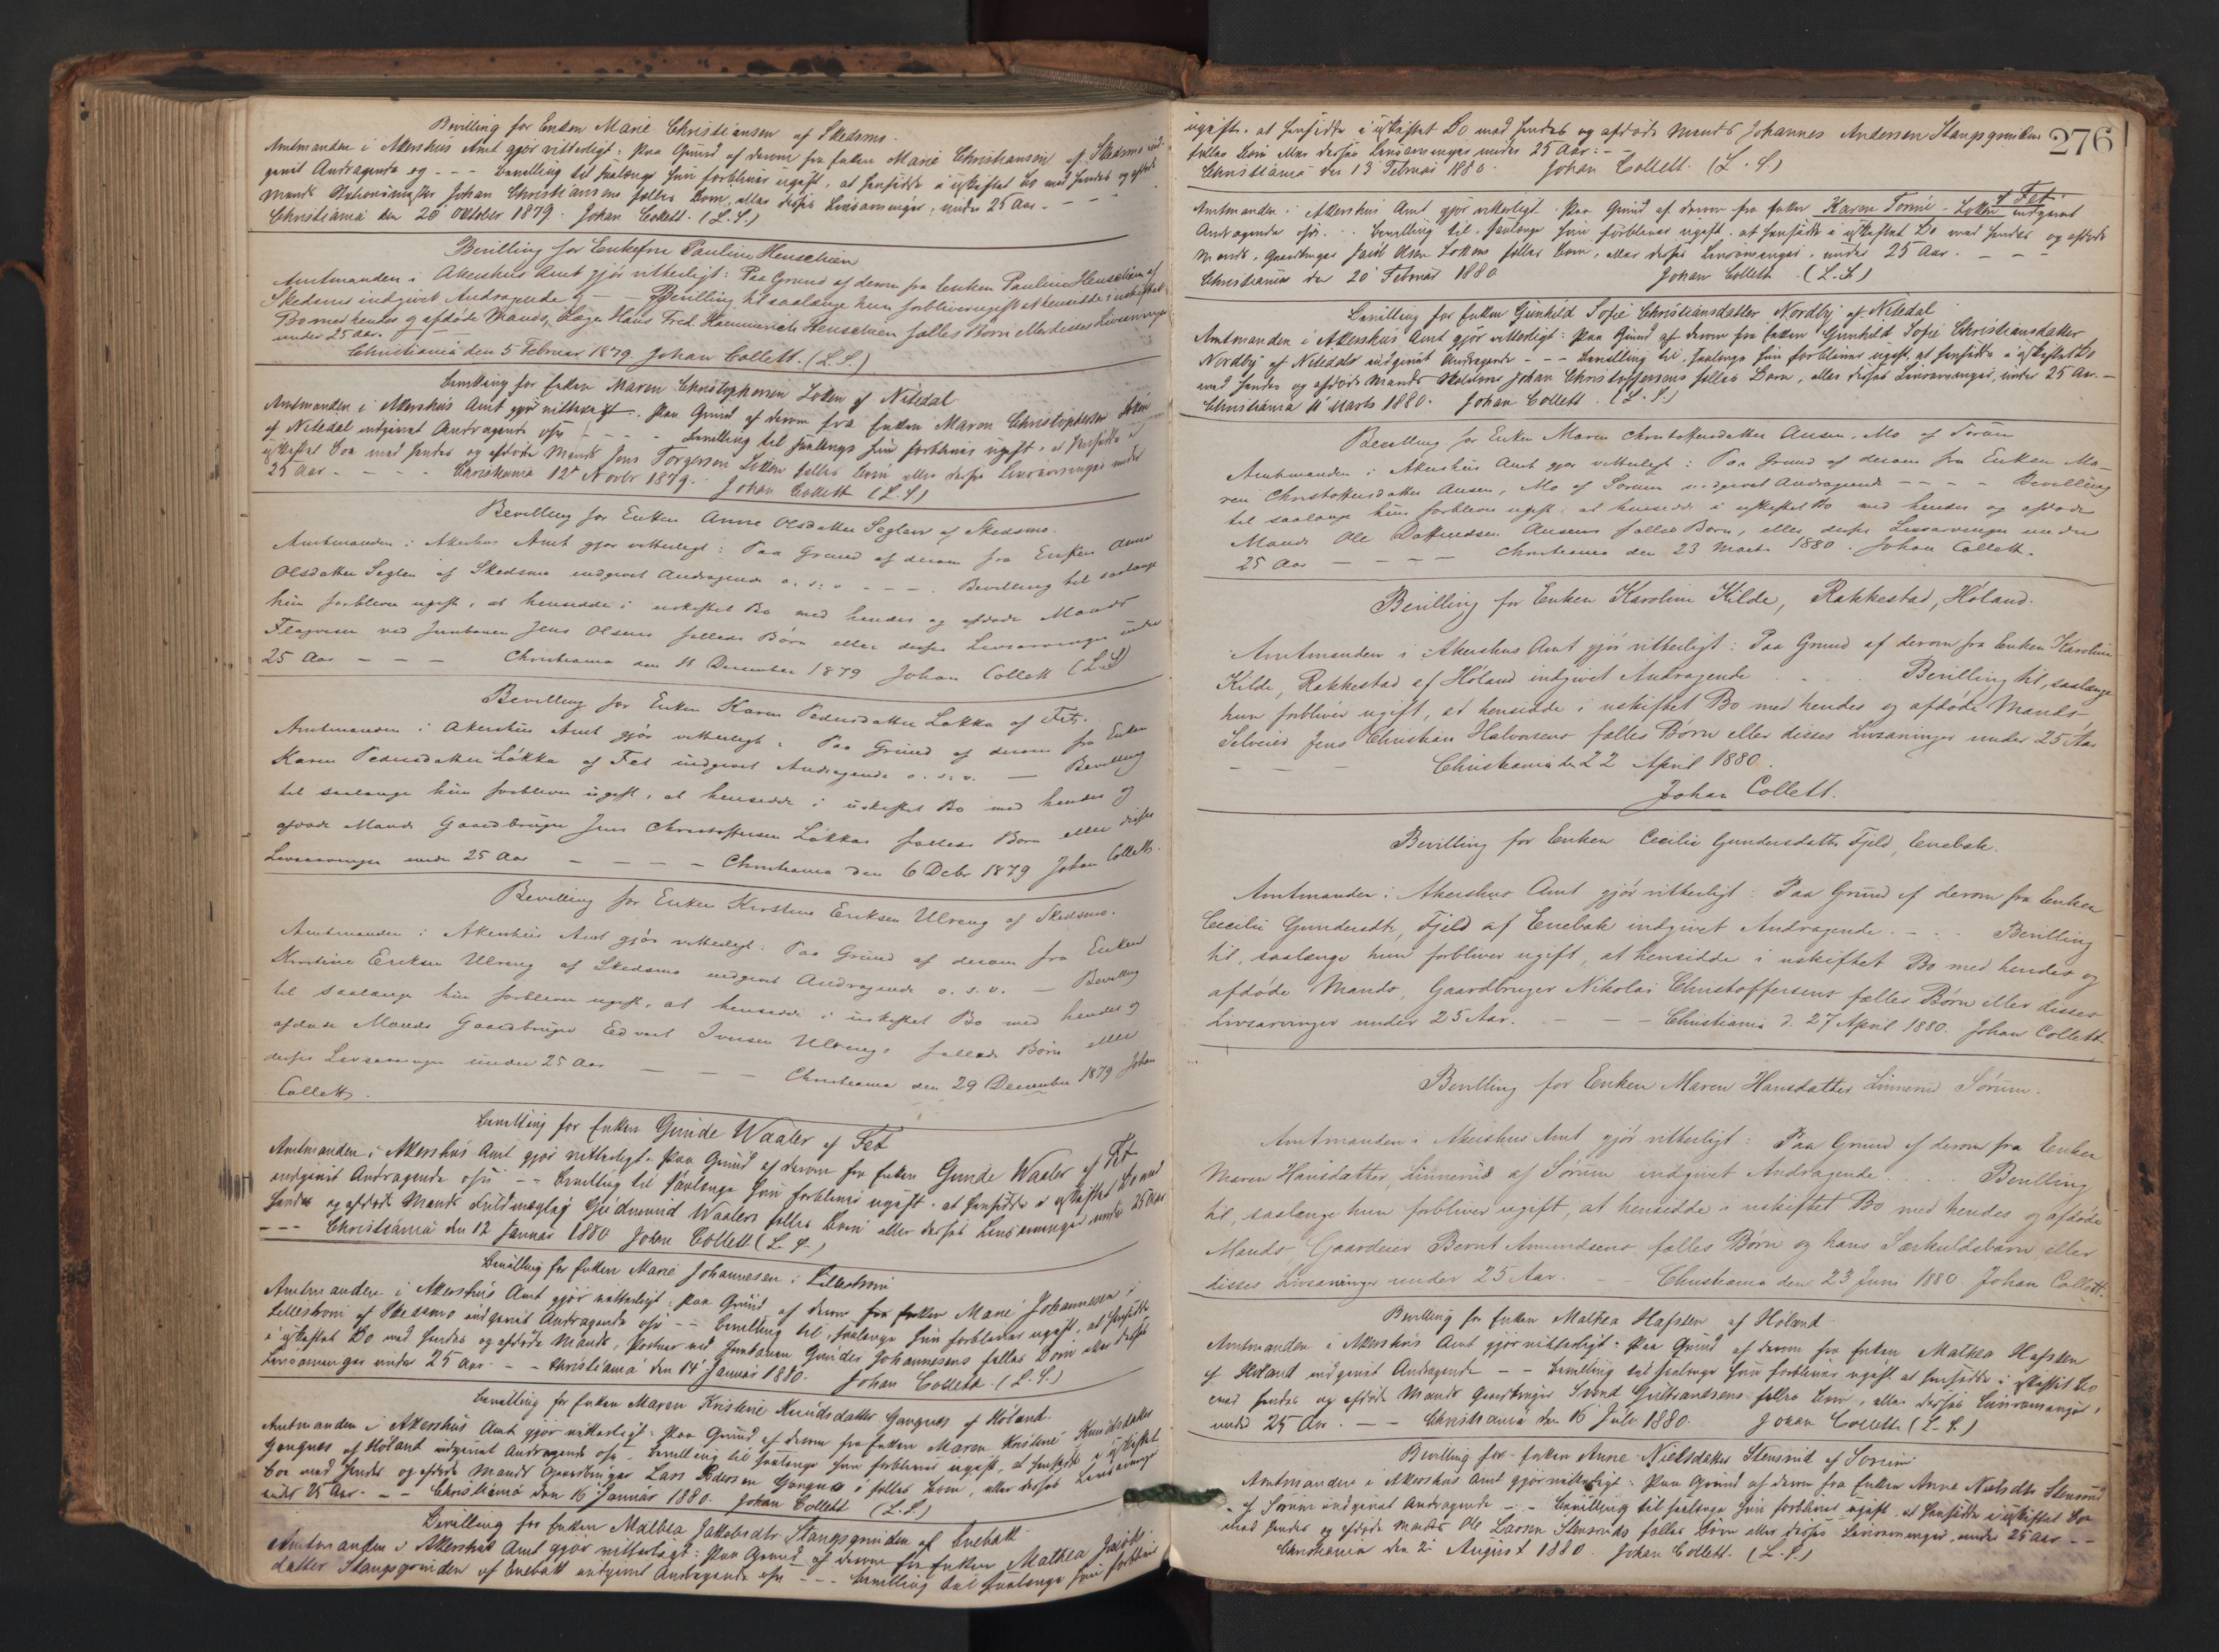 Bevilling for Enken Marie Christiansen af Skedsmo.
Amtmanden i Akershus Amt gjør vitterligt: Paa Grund af derom fra Enken Marie Christiansen af Skedsmo ind-
givet Andragende og - - - Bevilling til saalænge hun forbliver ugift, at hensidde i uskiftet Bo med hendes og afdøde
Mands Stationsmester Johan Christiansens fælles Børn, eller disses Livsarvinger, under 25 Aar. - - -
Christiania den 20 oktober 1879. Johan Collett. (L.S.)
Bevilling for Enkefru Pauline Henschien
Amtmanden i Akershus Amt gjør vitterligt: Paa Grund af derom fra Enken Pauline Henschien af
Skedsmo indgivet Andragende og - - Bevilling til saalænge hun forbliver ugift at hensidde i uskiftet
Bo med hendes og afdøde Mands, Læge Hans Fred. Henschien fælles Børn eller disses Livsarvinger
under 25 Aar.
Christiania den 5 Februar 1879. Johan Collett. (L.S.)
Bevilling for Enken Maren Christophersen Løken af Nitedal
Amtmanden i Akershus Amt gjør vitterligt. Paa Grund af derom fra Enken Maren Christophersen Løken
af Nitedal indgivet Andragende osv - - - Bevilling til saalænge hun forbliver ugift, at hensidde i
uskiftet Boe med hendes og afdøde Mands Jens Torgersen Løken fælles Børn eller disses Livsarvinger under
25 Aar - - - Christiania 12t Novbr 1879. Johan Collett (L.S.)
Bevilling for Enken Anne Olsdatter Seglen af Skedsmo.
Amtmanden i Akershus Amt gjør vitterligt: Paa Grund af derom fra Enken Anne
Olsdatter Seglen af Skedsmo indgivet Andragende o. s. v - - - . Bevilling til saalænge
hun forbliver ugift, at hensidde i uskiftet Bo med hendes og afdøde Mands
ved Jernbanen Jens Olsens fælleds Børn eller disses Livsarvinger under
25 Aar - - - Christiania den 18 December 1879 Johan Collett (L.S)
Bevilling for Enken Karen Pedersdatter Løkka af Fet.
Amtmanden i Akershus Amt gjør vitterligt: Paa Grund af derom fra Enken
Karen Pedersdatter Løkka af Fet indgivet Andragende o. s. v. — Bevilling
til saalænge hun forbliver ugift, at hensidde i uskiftet Bo med hendes og
afdøde Mands Gaardbruger Jens Christoffersen Løkkas fælleds Børn eller disses
Livsarvinger under 25 Aar - - - - Christiania den 6 Debr 1879 Johan Collett.
Bevilling for Enken Kirstine Eriksen Ulveng af Skedsmo.
Amtmanden i Akershus Amt gjør vitterligt: Paa Grund af derom fra Enken
Kirstine Eriksen Ulveng af Skedsmo indgivet Andragende o. s. v. — Bevilling
til saalænge hun forbliver ugift, at hensidde i uskiftet Bo med hendes og
afdøde Mands Gaardbruger Edvart Iversen Ulvengs fælleds Børn eller
disses Livsarvinger under 25 Aar — — — Christiania den 29 December 1879 Johan
Collett.
Bevilling for Enken Gunde Waaler af Fet
Amtmanden i Akershus Amt gjør vitterligt. Paa Grund af derom fra Enken Gunde Waaler af Fet
indgivet Andragende osv - - Bevilling til saalænge hun forbliver ugift, at hensidde i uskiftet Bo med
hendes og afdøde Mands Fuldmægtig Gudmund Waalers fælles Børn eller disses Livsarvinger under 25 Aar
- - - Christiania den 12 Januar 1880 Johan Collett (L.S.)
Bevilling for Enken Marie Johannesen i Lillestrøm
Amtmanden i Akershus Amt gjør vitterligt: Paa Grund af derom fra Enken Marie Johannesen i
Lillestrøm af Skedsmo indgivet Andragende osv - - Bevilling til, saalænge hun forbliver ugift, at hensidde
i uskiftet Bo med hendes og afdøde Mands, ved Jernbanen Johannesens fælles Børn eller disses
Livsarvinger under 25 Aar - - Christiania den 14 Januar 1880. Johan Collett. (L.S.)
Bevilling for Enken Maren Kristine Knudsdatter Gangnes af Høland.
Amtmanden i Akershus Amt gjør vitterligt: Paa Grund af derom fra Enken Maren Kristine Knudsdatter
Gangnes af Høland indgivet Andragende osv. Bevilling til saalænge hun forbliver ugift, at hensidde i uskiftet
Boe med hendes og afdøde Mands Gaardbruger Lars Pedersen Gangnes's fælles Børn, eller disses Livsarvinger
under 25 Aar. - - Christiania den 16 Januar 1880. Johan Collett (L.S.)
Bevilling for Enken Mathea Jakobsdtr. Stangsgrinden af Enebakk
Amtmanden i Akershus Amt gjør vitterligt: Paa Grund af derom fra Enken Mathea Jakobs-
datter Stangsgrinden af Enebakk indgivet Andragende osv - - - Bevilling til saalænge hun forbliver
276
ugift, at hensidde i uskiftet Bo med hendes og afdøde Mands Johannes Andersen Stangsgrinden
fælles Børn eller disses Livsarvinger under 25 Aar: - -
Christiania den 13 Februar 1880. Johan Collett. (L.S)
Amtmanden i Akershus Amt gjør vitterligt. Paa Grund af derom fra Enken Karen Tonine Løken af Fet indgivet
Andragende osv. . . Bevilling til, saalænge hun forbliver ugift, at hensidde i uskiftet Bo med hendes og afdøde
Mands, Gaardbruger Olsen Løkens fælles Børn, eller disses Livsarvinger, under 25 Aar. - - -
Christiania den 20 Februar 1880 Johan Collett. (L.S.)
Bevilling for Enken Gunhild Sofie Christiansdatter Nordby af Nitedal
Amtmanden i Akershus Amt gjør vitterligt: Paa Grund af derom fra Enken Gunhild Sofie Christiansdatter
Nordby af Nitedal indgivet Andragende - - - Bevilling til, saalænge hun forbliver ugift, at hensidde i uskiftet Bo
med hendes og afdøde Mands Johan Christoffersens fælles Børn, eller disses Livsarvinger, under 25 Aar. -
Christiania 11 Marts 1880. Johan Collett. (L.S.)
Bevilling for Enken Maren Christoffersdatter Ausen, Mo af Sørum
Amtmanden i Akershus Amt gjør vitterligt: Paa Grund af derom fra Enken Ma-
ren Christoffersdatter Ausen, Mo af Sørum indgivet Andragende - - - - Bevilling
til saalænge hun forbliver ugift, at hensidde i uskiftet Bo med hendes og afdøde
Mands Ole Ausens fælles Børn, eller disses Livsarvinger under
25 Aar — — — — Christiania den 23 Marts 1880. Johan Collett.
Bevilling for Enken Karoline Kilde, Rakkestad, Høland.
Amtmanden i Akershus Amt gjør vitterligt: Paa Grund af derom fra Enken Karoline
Kilde, Rakkestad af Høland indgivet Andragende . . . . Bevilling til, saalænge
hun forbliver ugift, at hensidde i uskiftet Bo med hendes og afdøde Mands-
Selveier Jens Christian Halvorsens fælles Børn eller disses Livsarvinger under 25 Aar
- - - Christiania den 22 April 1880.
Johan Collett.
Bevilling for Enken Cecilie Gundersdatter Fjeld, Enebak.
Amtmanden i Akershus Amt gjør vitterligt: Paa Grund af derom fra Enken
Cecilie Gundersdtr, Fjeld af Enebak indgivet Andragende. - . . Bevilling
til, saalænge hun forbliver ugift, at hensidde i uskiftet Bo med hendes og
afdøde Mands, Gaardbruger Nikolai Christoffersens fælles Børn eller disses
Livsarvinger under 25 Aar. - - - Christiania d. 27 April 1880. Johan Collett.
Bevilling for Enken Maren Hansdatter Linnerud Sørum.
Amtmanden i Akershus Amt gjør vitterligt: Paa Grund af derom fra Enken
Maren Hansdatter, Linnerud af Sørum indgivet Andragende . . . Bevilling
til, saalænge hun forbliver ugift, at hensidde i uskiftet Bo med hendes og afdøde
Mands Gaardeier Bernt Amundsens fælles Børn og hans Særkuldebarn eller
disses Livsarvinger under 25 Aar. - - Christiania den 23 Juni 1880. Johan Collett.
Bevilling for Enken Mathea Hafsten af Høland
Amtmanden i Akershus Amt gjør vitterligt: Paa Grund af derom fra Enken Mathea Hafsten
af Høland indgivet Andragende - - Bevilling til saalænge hun forbliver ugift at hensidde i uskiftet Bo
med hendes og afdøde Mands Gaardbruger Svend Gulbrandsens fælles Børn, eller disses Livsarvinger,
under 25 Aar. - - Christiania den 16 Juli 1880. Johan Collett (L.S.)
Bevilling for Enken Anne Nielsdatter Stensrud af Sørum
Amtmanden i Akershus Amt gjør vitterligt: Paa Grund af derom fra Enken Anne Nielsdtr Stensrud
af Sørum indgivet Andragende - - Bevilling til saalænge hun forbliver ugift, at hensidde i uskiftet Bo
med hendes og afdøde Mands Ole Larsen Stensruds fælles Børn eller disses Livsarvinger, under 25 Aar - -
Christiania den 2 August 1880. Johan Collett. (L.S.)